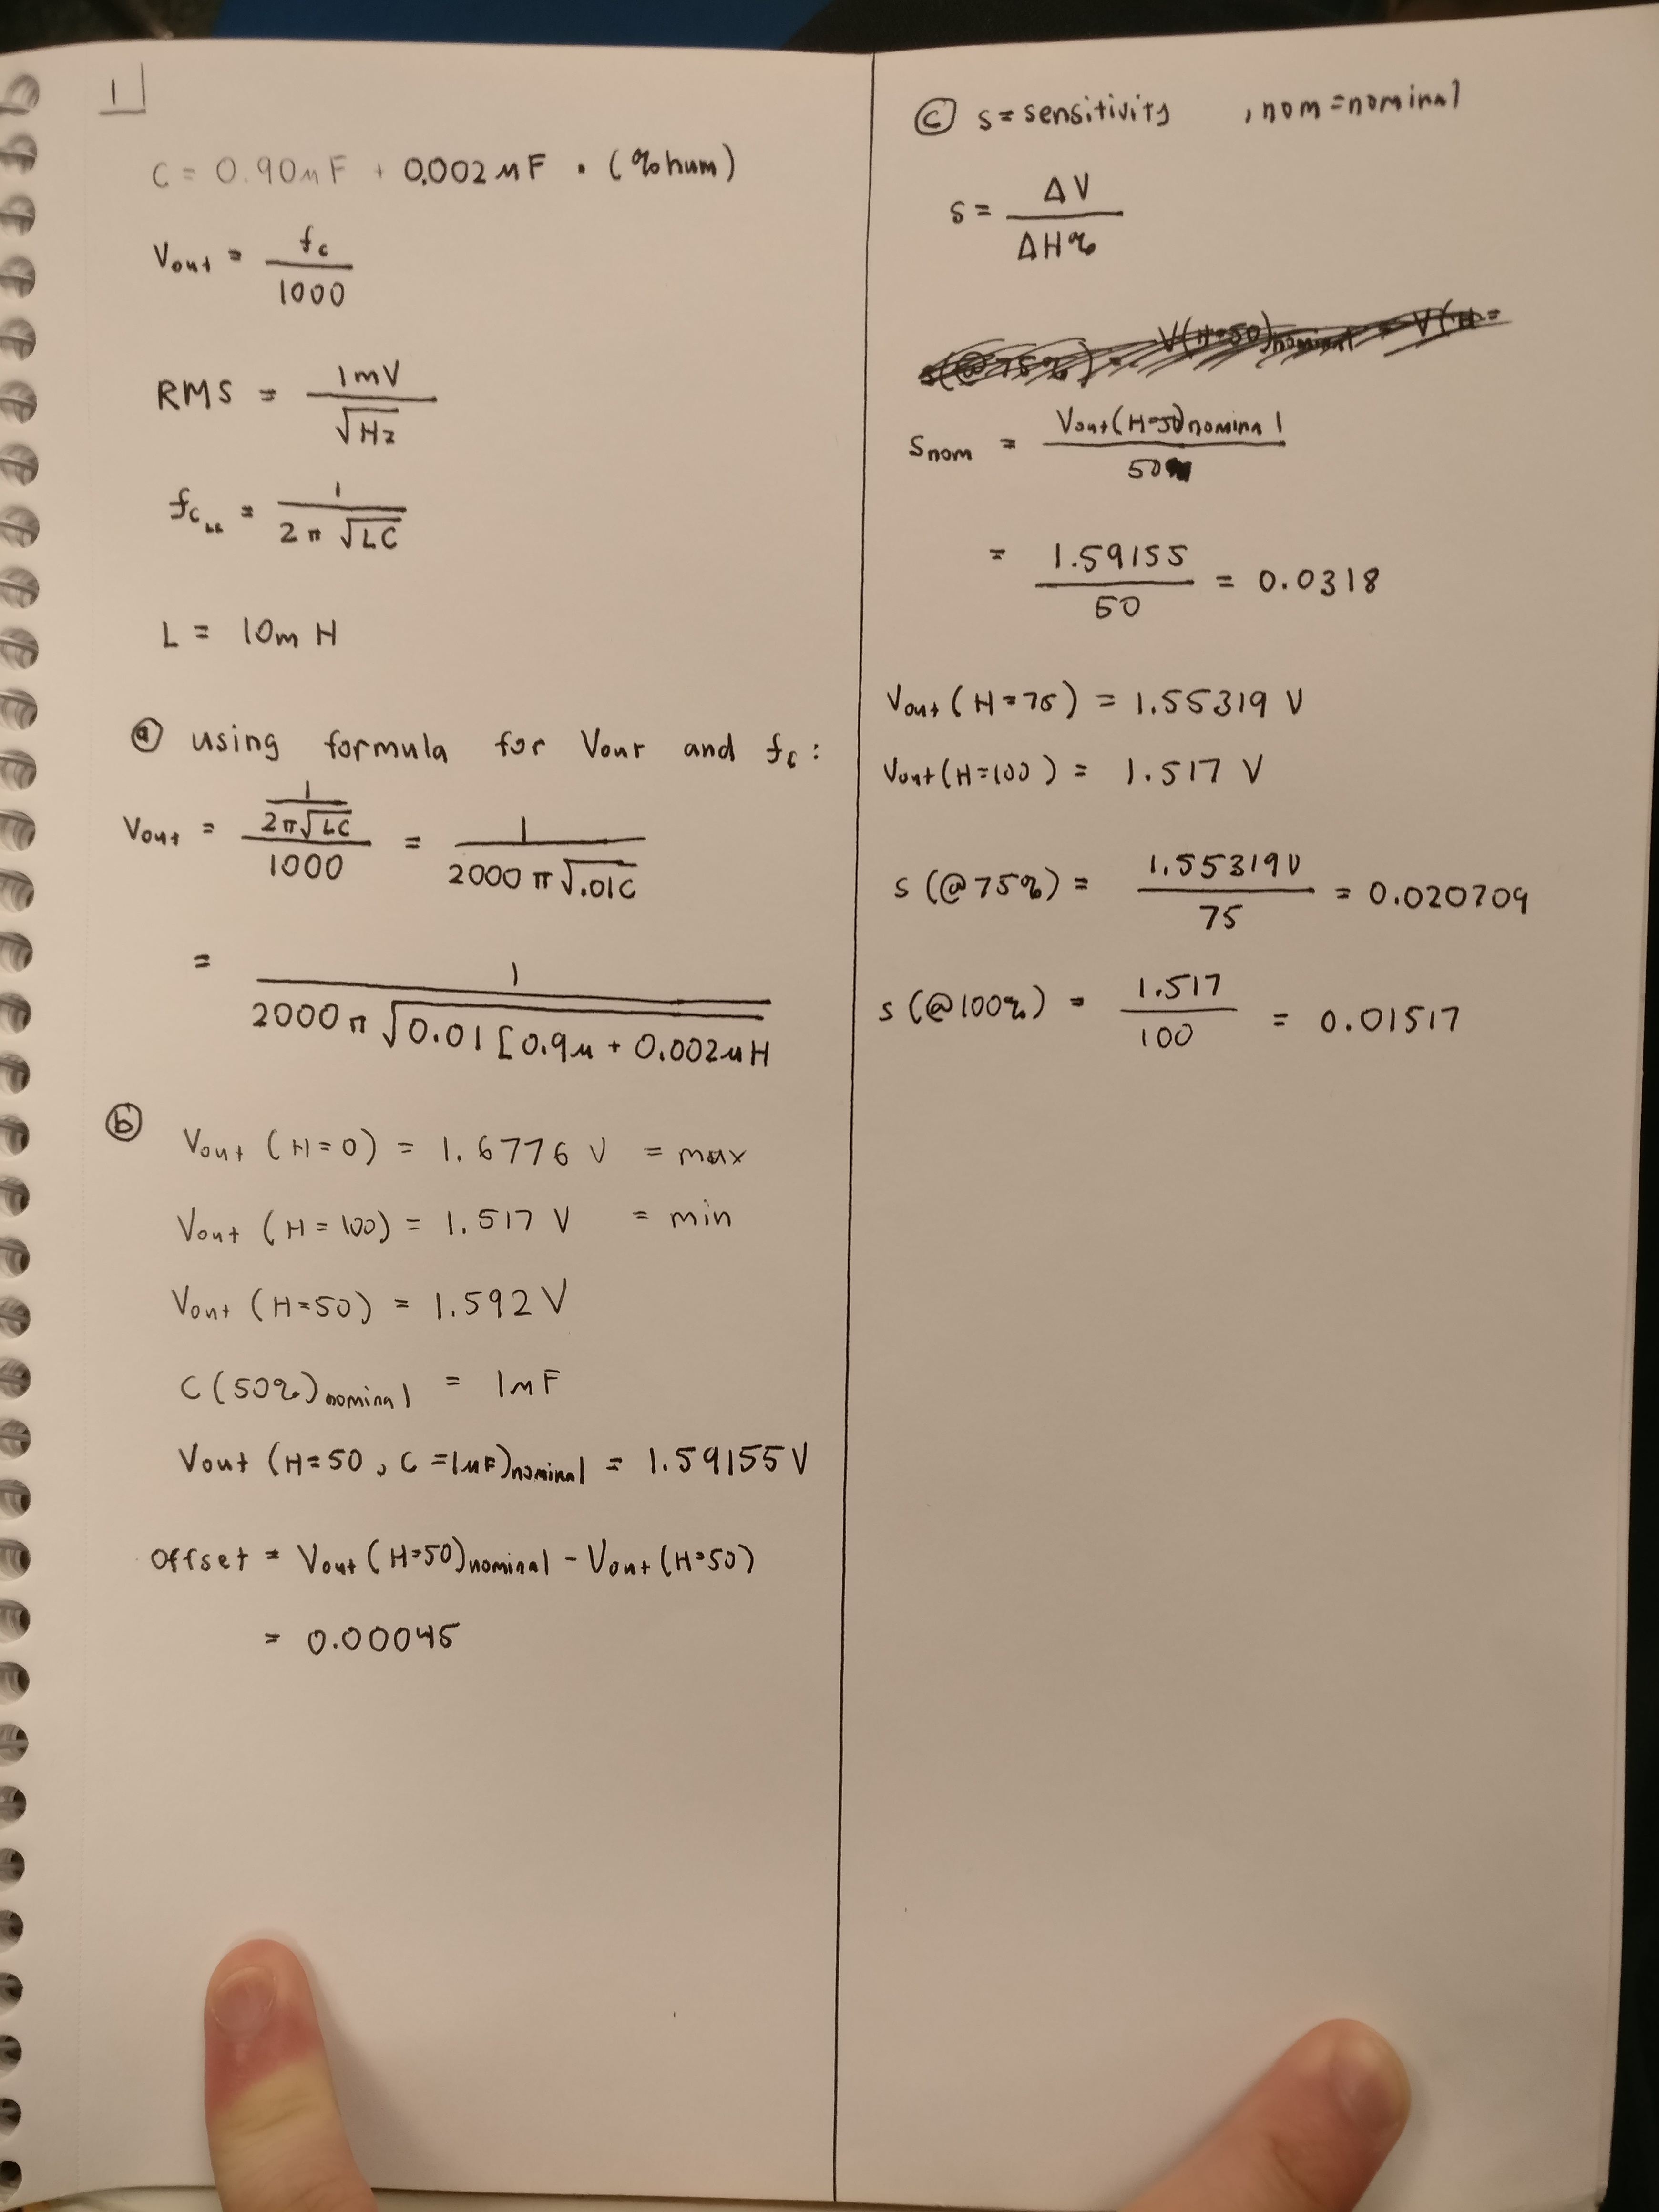 1
C = 0.90μF + 0.002μF · (%hum)
Vout = fc / 1000
RMS = 1mV / √Hz
fc = 1 / 2π √LC
L = 10mH
ⓐ using formula for Vout and fc:
Vout = 1 / 2π√LC / 1000 = 1 / 2000 π √.01C
= 1 / 2000 π √0.01 [0.9μ + 0.002μH
ⓑ
Vout (H=0) = 1.6776 V = max
Vout (H=100) = 1.517 V = min
Vout (H=50) = 1.592 V
C(50%)nominal = 1μF
Vout (H=50, C=1μF)nominal = 1.59155V
Offset = Vout (H=50)nominal - Vout (H=50)
= 0.00045
ⓒ s = sensitivity , nom = nominal
s = ΔV / ΔH%
s(@75%) = V(H=50)nominal - V(H=
Snom = Vout(H=50)nominal / 50
= 1.59155 / 50 = 0.0318
Vout (H=75) = 1.55319 V
Vout (H=100) = 1.517 V
s (@75%) = 1.55319V / 75 = 0.020709
s (@100%) = 1.517 / 100 = 0.01517